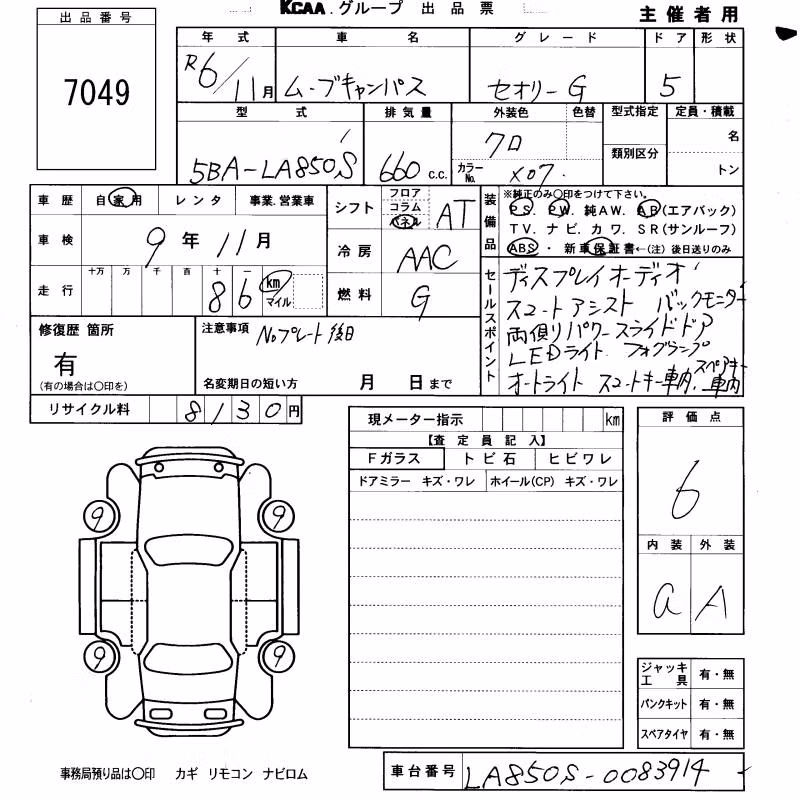 KCAA.グループ 出品票
主催者用
出品番号
7049
年式 車名 グレード ドア 形状
R6/11月 ムーブキャンバス セオリーG 5
型式 排気量 外装色 色替 型式指定 定員・積載
5BA-LA850S 660 c.c. クロ 類別区分 名
カラーNo. X07 トン
車歴 自家用 レンタ 事業.営業車
車検 9年11月
走行 十万 万 千 百 十 一
86 km マイル
シフト フロア コラム パネル AT
冷房 AAC
燃料 G
装備品
※純正のみ〇印をつけて下さい。
PS. PW. 純AW. AB(エアバック)
TV. ナビ. カワ. SR(サンルーフ)
ABS・新車保証書←(注)後日送りのみ
セールスポイント
ディスプレイオーディオ
スマートアシスト バックモニター
両側パワースライドドア
LEDライト フォグランプ
オートライト スマートキー車内.スペアキー車内
修復歴 箇所
有
(有の場合は〇印を)
注意事項 Noプレート後日
名変期日の短い方 月 日まで
リサイクル料 8130円
現メーター指示 km
【査定員記入】
Fガラス トビ石 ヒビワレ
ドアミラー キズ・ワレ ホイール(CP) キズ・ワレ
評価点
6
内装 外装
a A
9 9
9 9
ジャッキ工具 有・無
パンクキット 有・無
スペアタイヤ 有・無
事務局預り品は〇印 カギ リモコン ナビロム
車台番号 LA850S-0083914